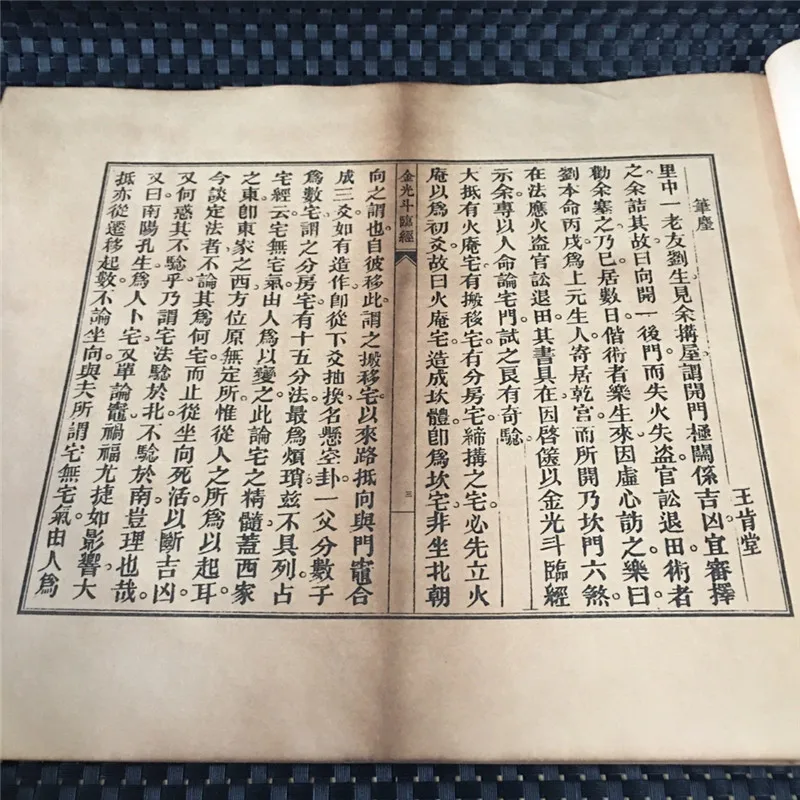 筆麈
王肯堂
里中一老友劉生見余搆屋謂開門極關係吉凶宜審擇
之余詰其故曰向開一後門而失火失盜官訟退田術者
勸余塞之乃已居數日偕術者樂生來因虛心訪之樂曰
劉本命丙戌爲上元生人寄居乾宮而所開乃坎門六煞
在法應火盜官訟退田其書具在因啓篋以金光斗臨經
示余專以人命論宅門試之良有奇騐
大抵有火庵宅有搬移宅有分房宅締搆之宅必先立火
庵以爲初爻故曰火庵宅造成坎體卽爲坎宅非坐北朝
金光斗臨經
三
向之謂也自彼移此謂之搬移宅以來路抵向與門竈合
成三爻如有造作卽從下爻抽換名懸空卦一父分數子
爲數宅謂之分房宅有十五分法最爲煩瑣茲不具列占
宅經云宅無宅氣由人爲以變之此論宅之精髓蓋西家
之東卽東家之西方位原無定所惟從人之所爲以起耳
今談定法者不論其爲何宅而止從坐向死活以斷吉凶
又何惑其不騐乎乃謂宅法騐於北不騐於南豈理也哉
又曰南陽孔生爲人卜宅又單論竈禍福尤捷如影響大
抵亦從遷移起數不論坐向與夫所謂宅無宅氣由人爲